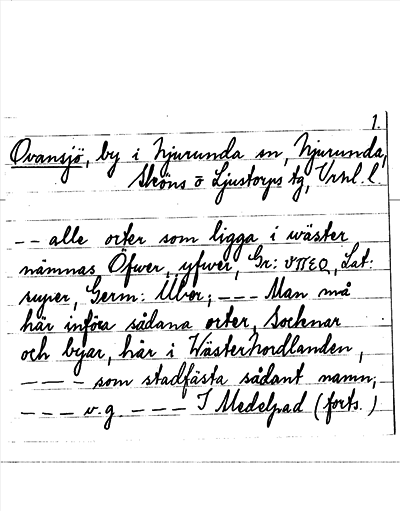 1.
Ovansjö, by i Njurunda sn, Njurunda,
Sköns o Ljustorps tg, Vrnl. l.
-- alle orter som ligga i wäster
nämnas Öfwer, yfwer, Gr: υπερ, Lat:
super, Germ: Uber; --- Man må
här införa sådana orter, Socknar
och byar, här i Wästernordlanden,
--- som stadfästa sådant namn;
--- v.g --- I Medelpad (forts.)